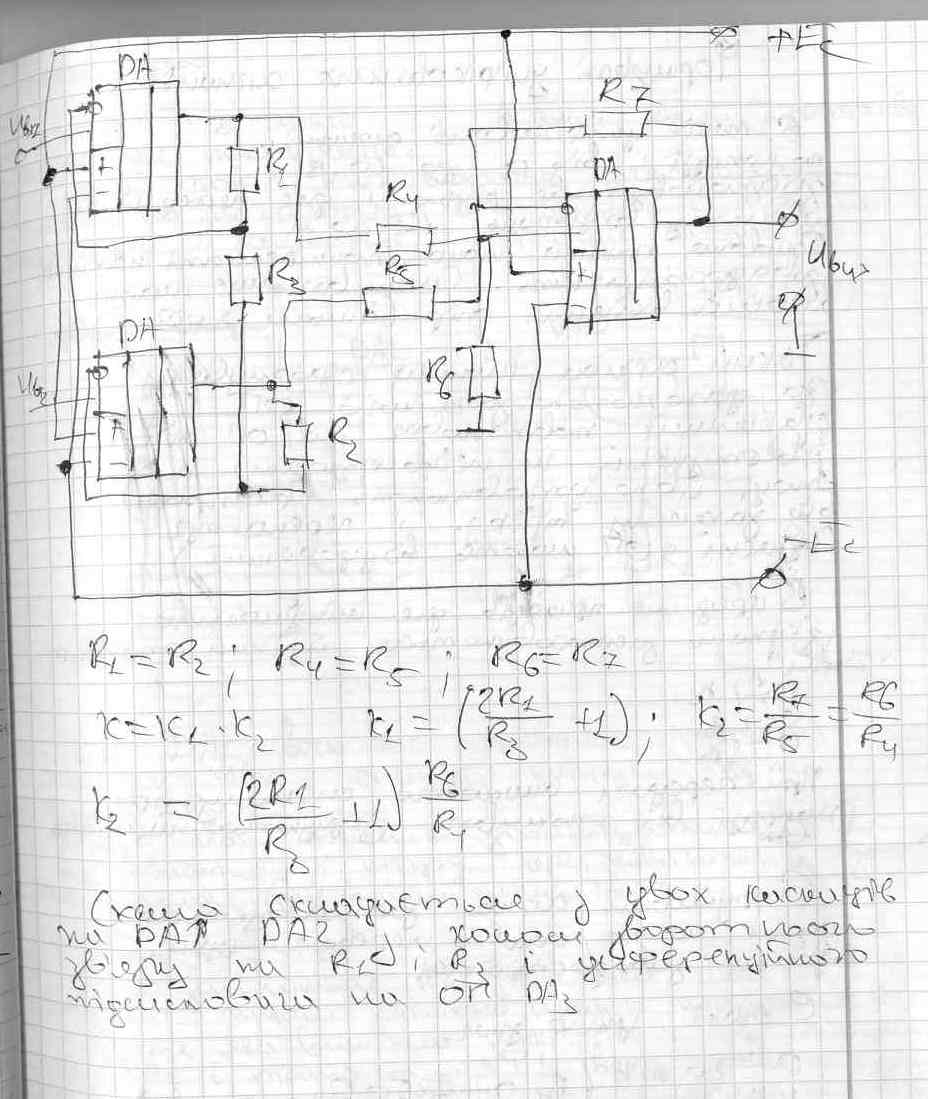 +Ec
DA
R7
Uвх1
+
-
R1
DA
R4
+
-
Uвих
R3
R5
DA
Uвх2
+
-
R6
R2
-Ec
R1 = R2 ; R4 = R5 ; R6 = R7
K = K1 · K2 K1 = (2R1/R3 + 1) ; K2 = R7/R5 = R6/R4
K2 = (2R1/R3 + 1) R6/R4
Схема складається з двох каскадів
на DA1 DA2 , колом зворотнього
звязку на R1 і R3 і диференційного
підсилювача на ОП DA3